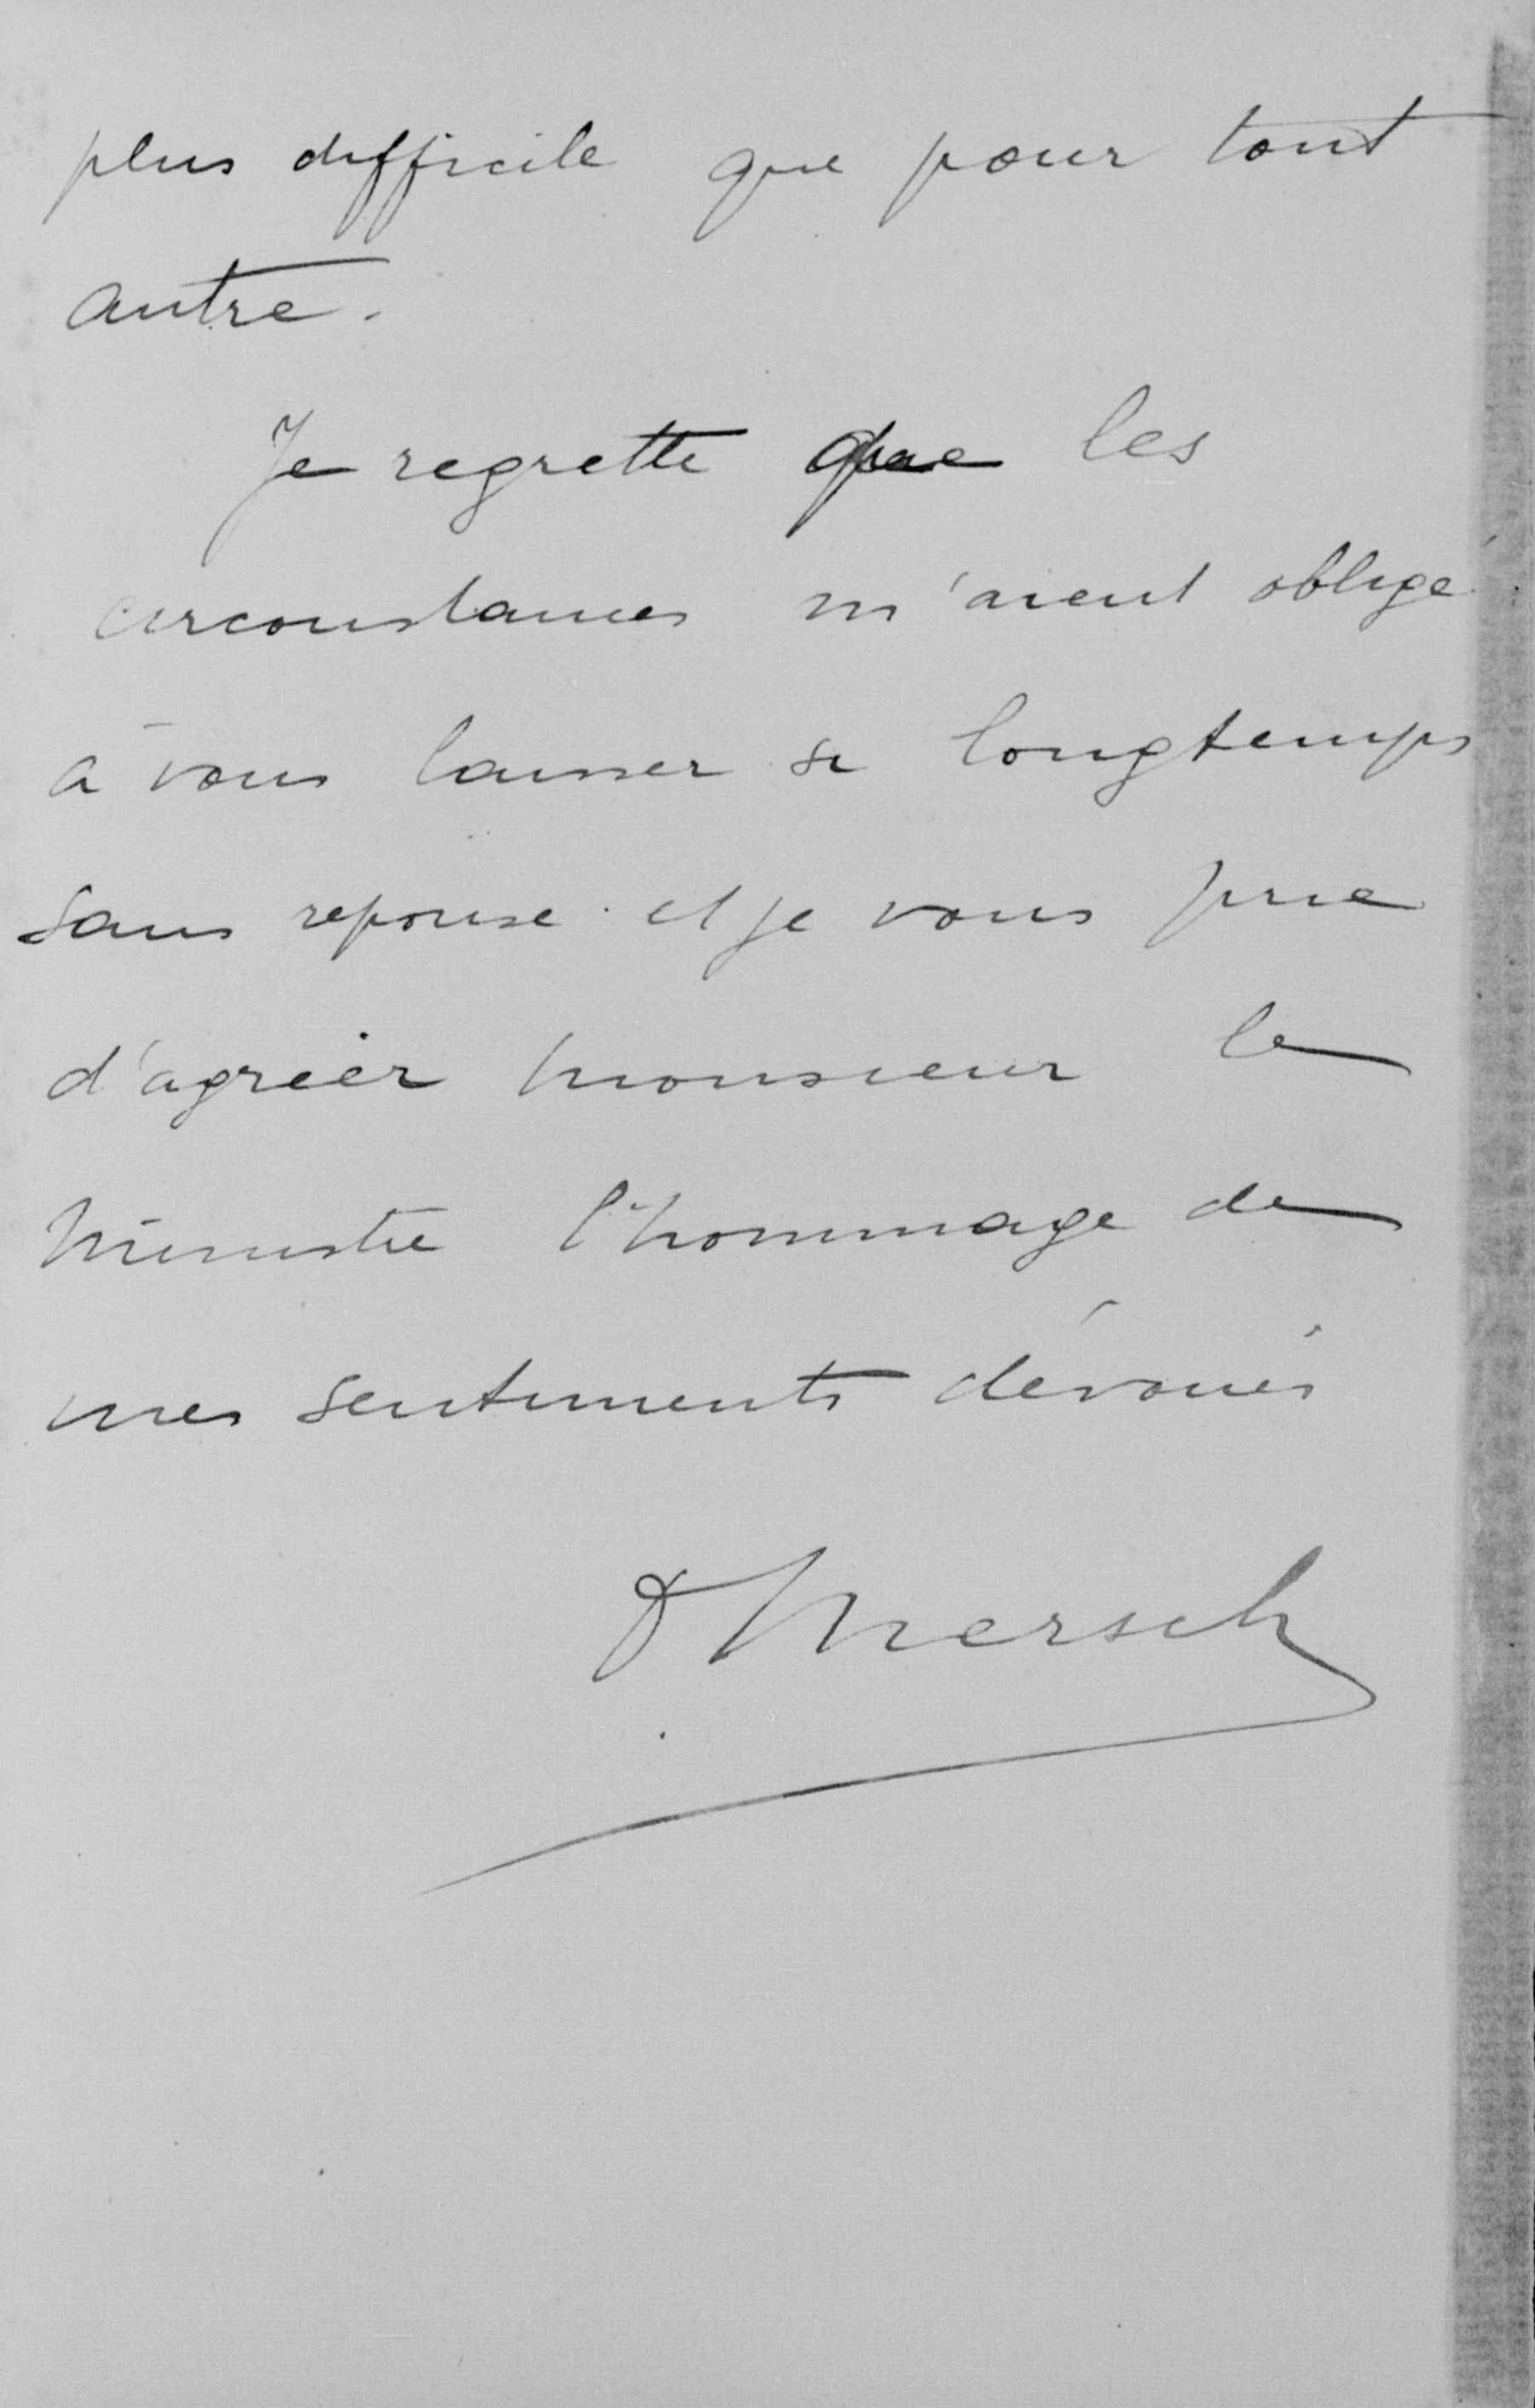 plus difficile que pour tout
autre.
Je regrette que les
circonstances m'aient obligé
à vous laisser si longtemps
sans reponse et je vous prie
d'agréer Monsieur le
Ministre l'hommage de
mes sentiments dévoués
Dr Mersch